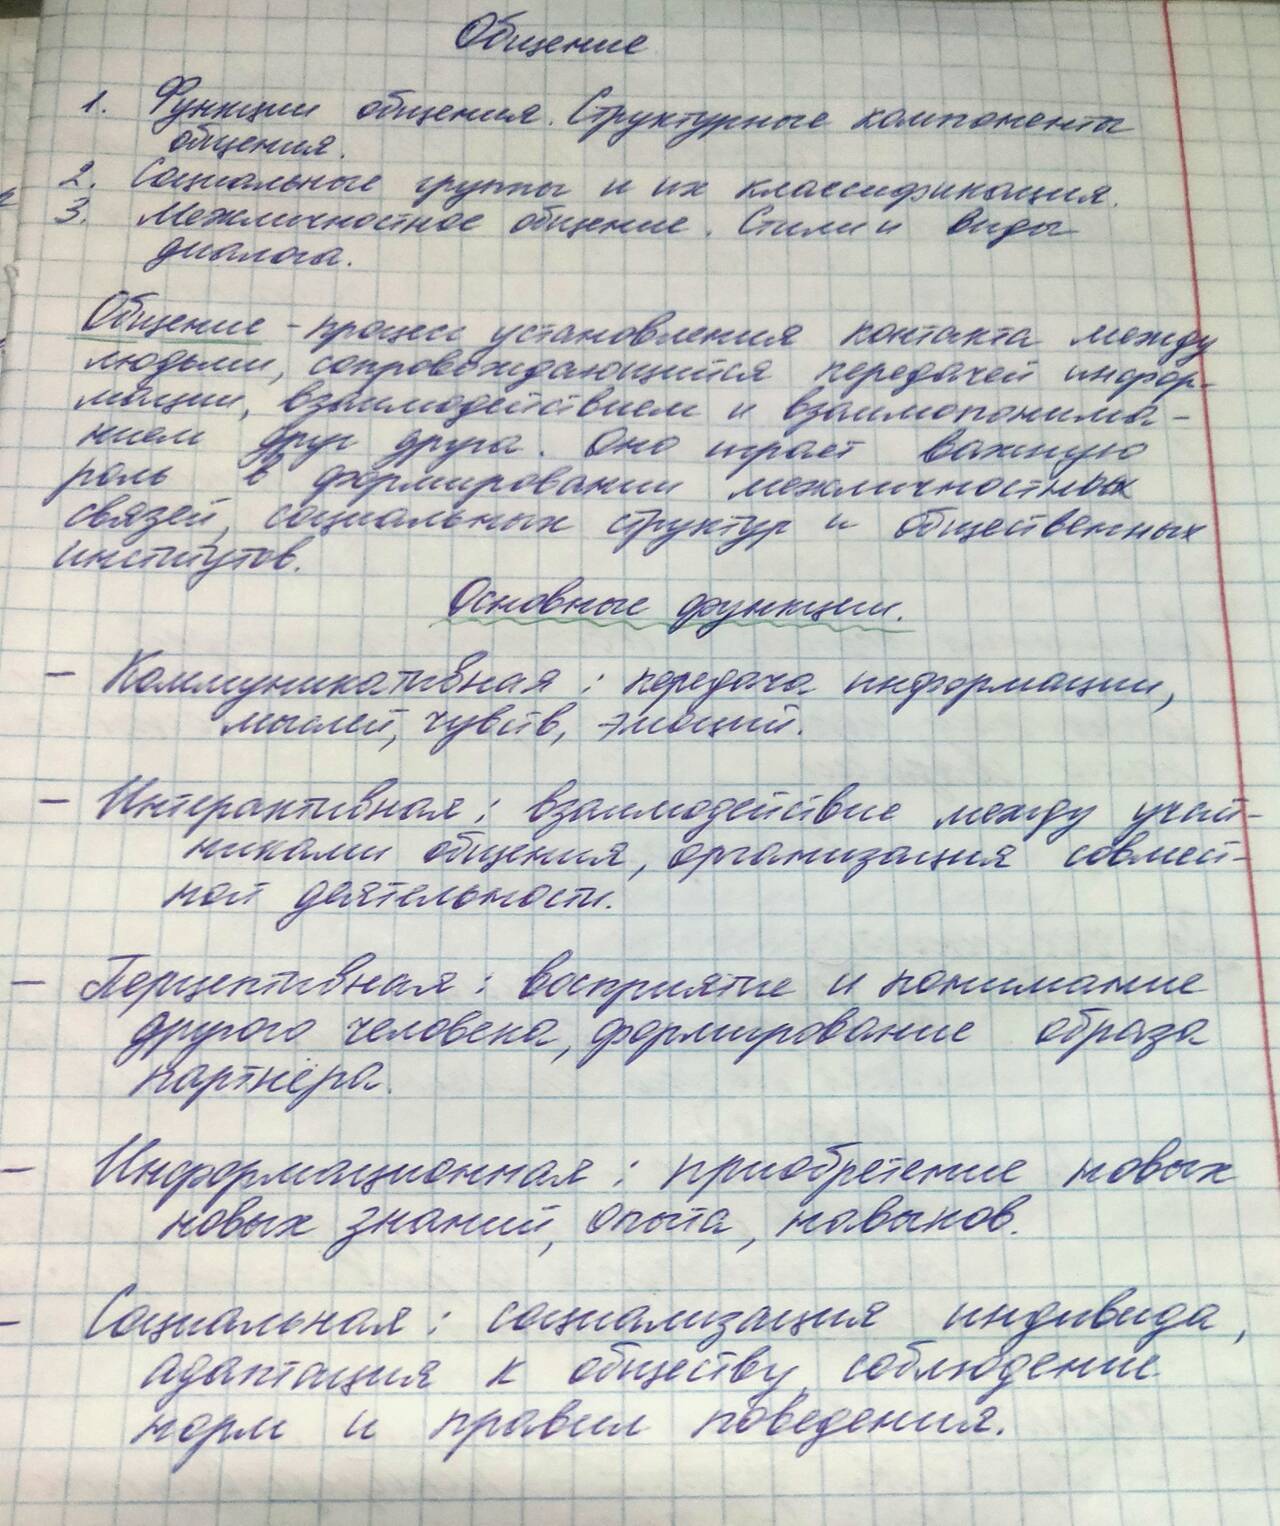 Общение
1. Функции общения. Структурные компоненты
общения.
2. Социальные группы и их классификация.
3. Межличностное общение. Стили и виды
диалога.
Общение - процесс установления контакта между
людьми, сопровождающийся передачей инфор-
мации, взаимодействием и взаимопонима-
нием друг друга. Оно играет важную
роль в формировании межличностных
связей, социальных структур и общественных
институтов.
Основные функции.
- Коммуникативная: передача информации,
мыслей, чувств, эмоций.
- Интерактивная: взаимодействие между участ-
никами общения, организация совмест-
ной деятельности.
- Перцептивная: восприятие и понимание
другого человека, формирование образа
партнёра.
- Информационная: приобретение новых
новых знаний, опыта, навыков.
- Социальная: социализация индивида,
адаптация к обществу, соблюдение
норм и правил поведения.